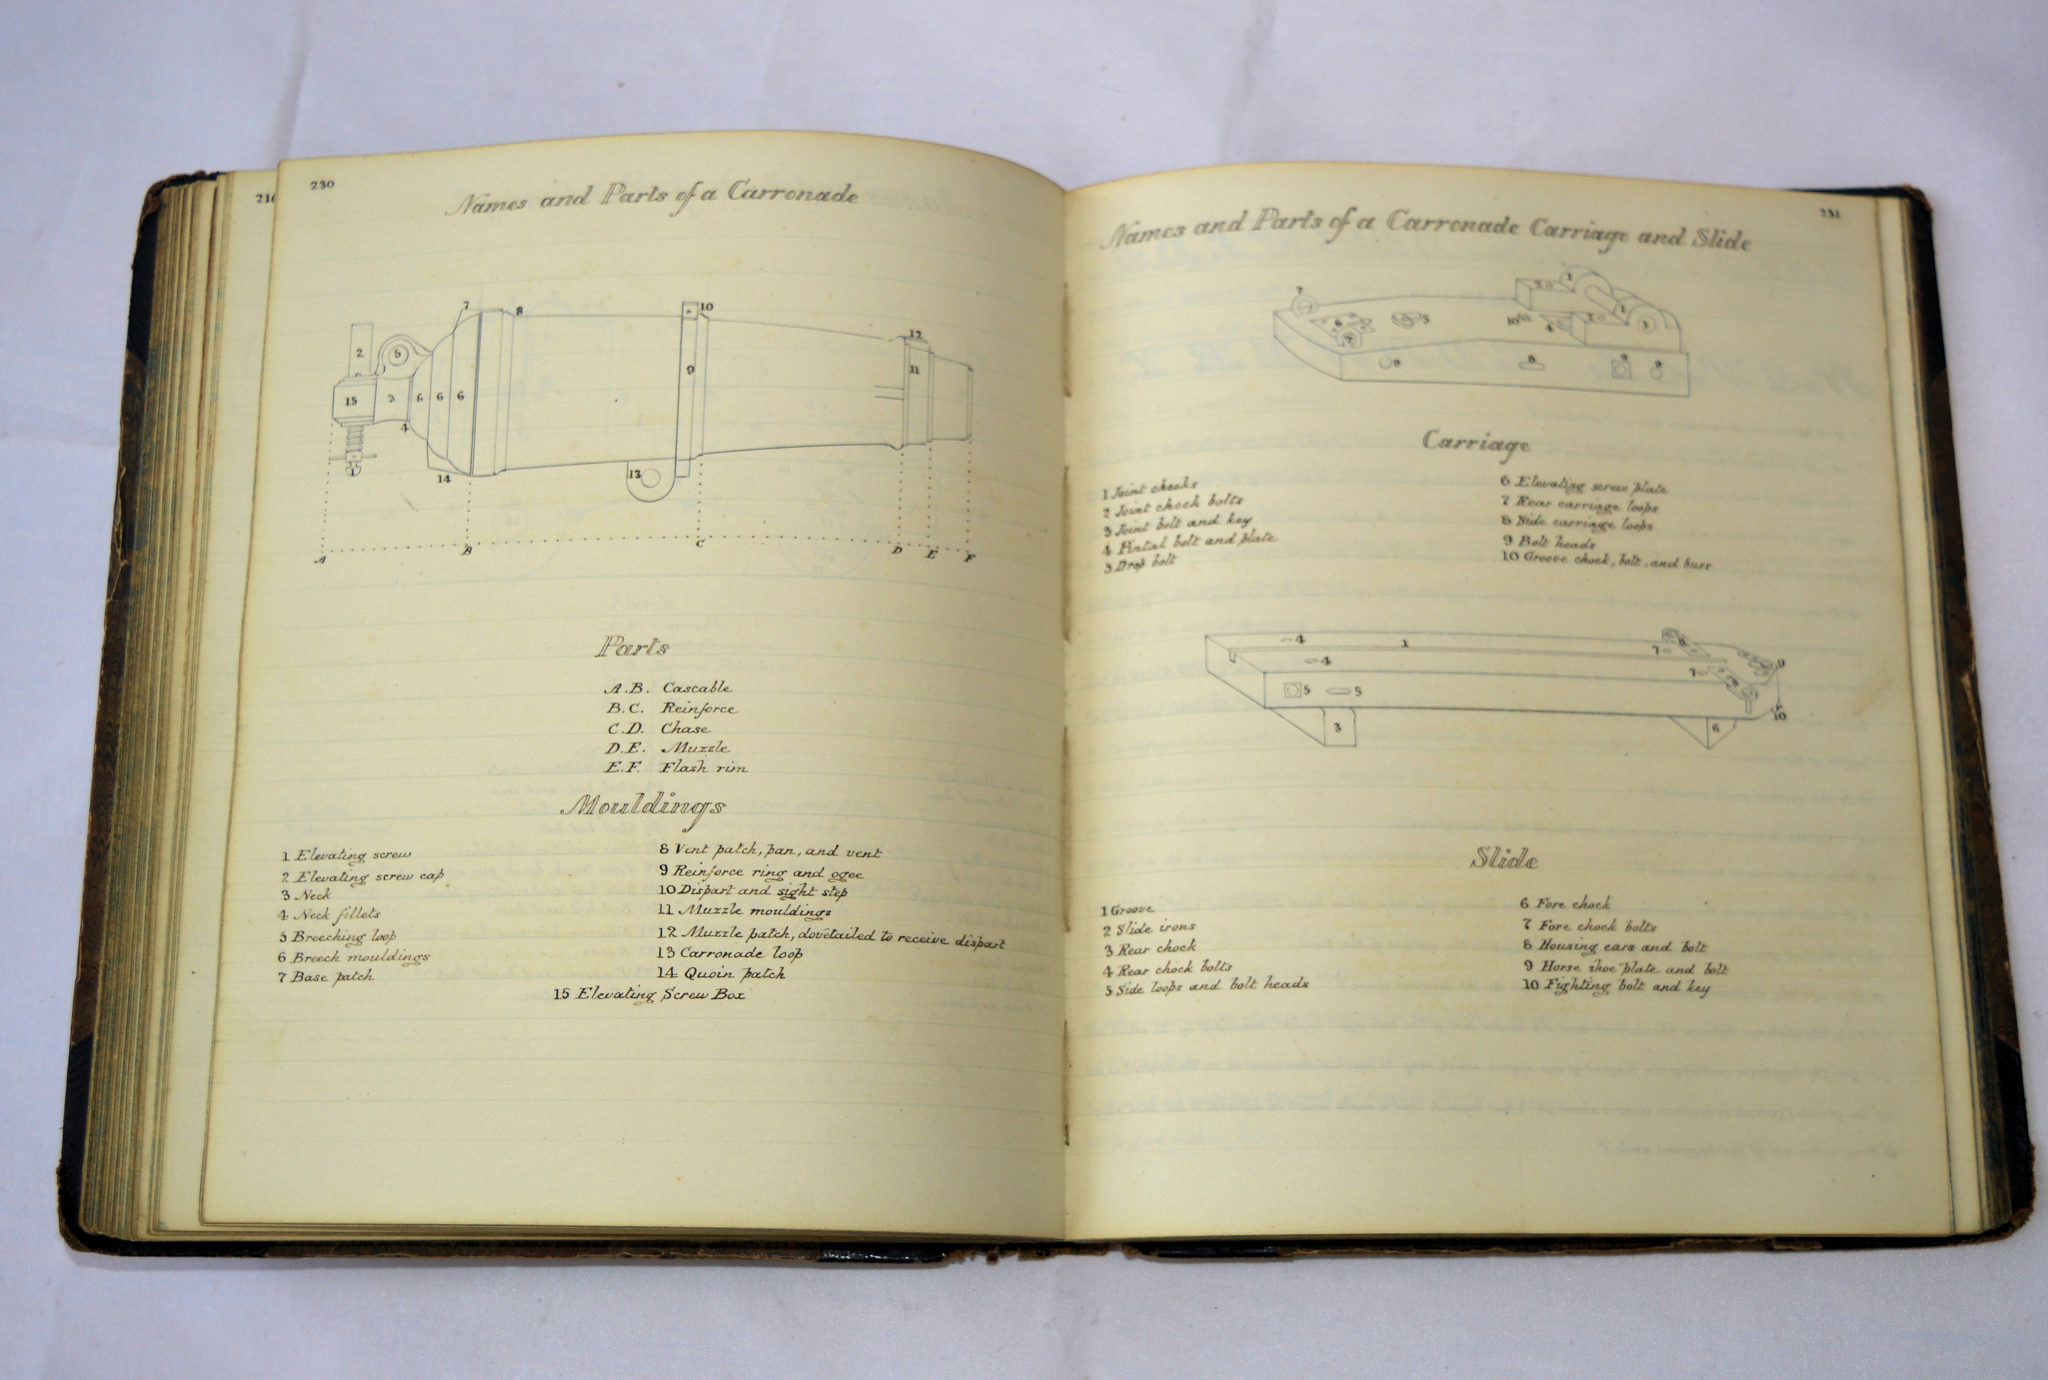 216
230
Names and Parts of a Carronade
7
8
10
12
2
5
9
11
15
3
6
6
6
4
1
14
13
A
B
C
D
E
F
Parts
A.B. Cascable
B.C. Reinforce
C.D. Chase
D.E. Muzzle
E.F. Flash rim
Mouldings
1 Elevating screw
2 Elevating screw cap
3 Neck
4 Neck fillets
5 Breeching loop
6 Breech mouldings
7 Base patch
8 Vent patch, pan, and vent
9 Reinforce ring and ogee
10 Dispart and sight step
11 Muzzle mouldings
12 Muzzle patch, dovetailed to receive dispart
13 Carronade loop
14 Quoin patch
15 Elevating Screw Box
231
Names and Parts of a Carronade Carriage and Slide
7
6
5
10
4
2
1
2
1
3
9
8
9
8
Carriage
1 Joint cheeks
2 Joint cheek bolts
3 Joint bolt and key
4 Pintal bolt and plate
5 Drop bolt
6 Elevating screw plate
7 Rear carriage loops
8 Side carriage loops
9 Bolt heads
10 Groove chock, bolt, and burr
4
1
4
7
7
9
5
5
3
6
10
Slide
1 Groove
2 Slide irons
3 Rear chock
4 Rear chock bolts
5 Side loops and bolt heads
6 Fore chock
7 Fore chock bolts
8 Housing ears and bolt
9 Horse shoe plate and bolt
10 Fighting bolt and key